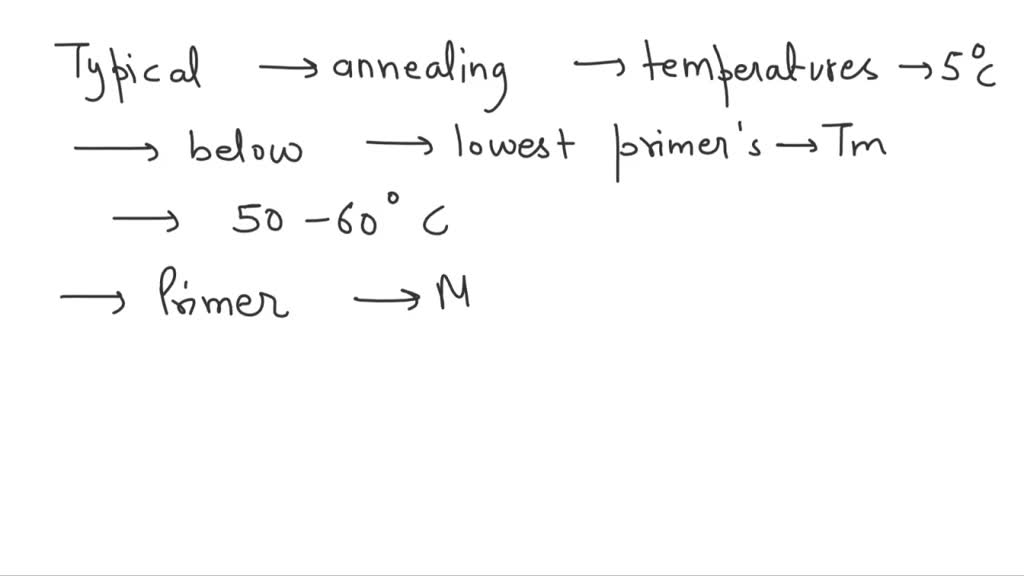 Typical → annealing → temperatures → 5°C
→ below → lowest primer's → Tm
→ 50-60°C
→ Primer → M